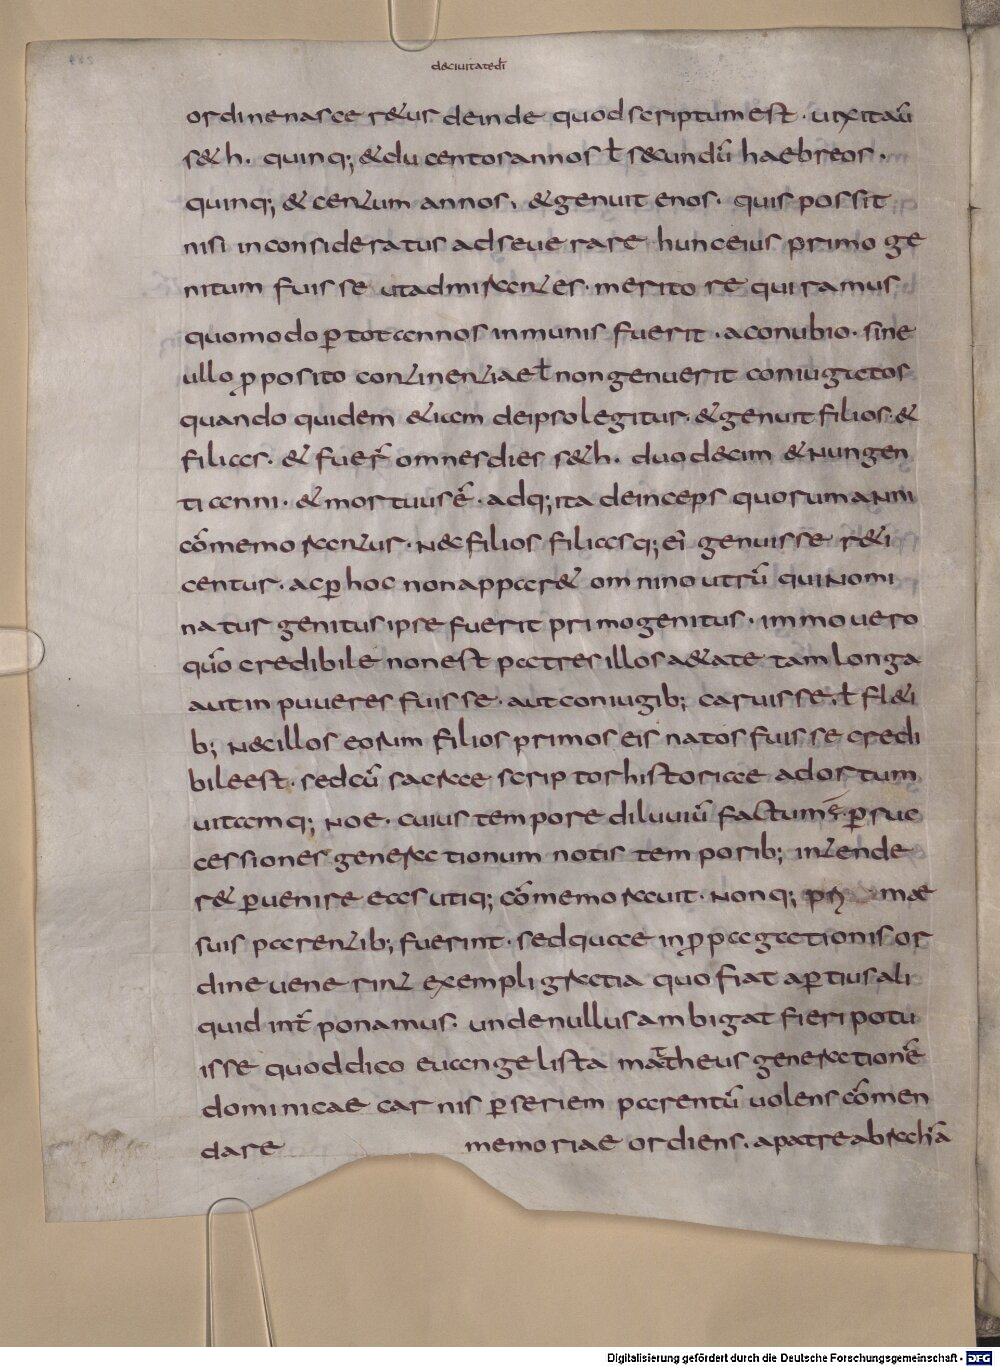 deciuitatedī
ordine nasceretur deinde quod scriptum est · uixit aūt
seth · quinq; & ducentos annos ł secundū haebreos ·
quinq; & centum annos · & genuit enos · quis possit
nisi inconsideratus adseuerare hunc eius primoge
nitum fuisse ut admirantes · merito requiramus
quomodo p̱ tot annos inmunis fuerit · a conubio · sine
ullo ꝓposito continentiae ł non genuerit coniugatos
quando quidem etiam de ipso legitur · & genuit filios · &
filias · & fuer̄ omnes dies seth · duodecim & nungen
ti anni · & mortuus ē · adq; ita deinceps quorum anni
cōmemorantur · nec filios filiasq; eī genuisse reti
centur · ac p̱ hoc non apparet omnino utrū qui nomi
natus genitus ipse fuerit primogenitus · immo uero
quō credibile non est patres illos aetate tam longa
aut in puueres fuisse · aut coniugib; caruisse · ł fleti
b; nec illos eorum filios primos eis natos fuisse credi
bile est · sed cū sacrae scriptor historicae ad ortum
uitamq; noe · cuius tempore diluuiū factum ē p̱ suc
cessiones generationum notis temporib; intende
ret p̱uenire eas utiq; cōmemorauit · non q; mae
suis parentib; fuerint · sed quae in ꝓpagationis or
dine uenerint exempli gratia quo fiat ap̱tius ali
quid int̄ ponamus · unde nullus ambigat fieri potu
isse quod dico euangelista mattheus generationē
dominicae carnis p̱ seriem parentū uolens cōmen
dare memoriae ordiens · a patre abrahā
Digitalisierung gefördert durch die Deutsche Forschungsgemeinschaft - DFG